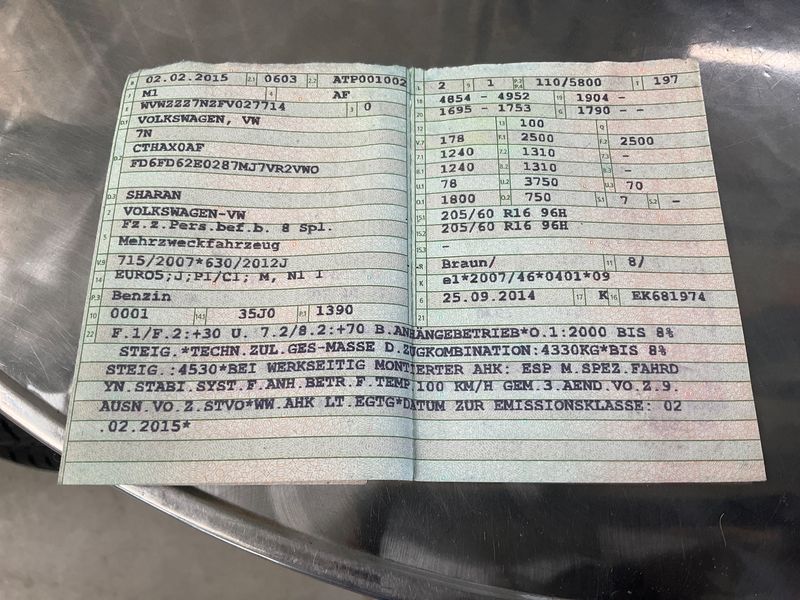 B 02.02.2015 2.1 0603 2.2 ATP001002
J M1 4 AF
E WVWZZZ7NZFV027714 3 0
D.1 VOLKSWAGEN, VW
7N
D.2 CTHAX0AF
FD6FD62E0287MJ7VR2VW0
D.3 SHARAN
2 VOLKSWAGEN-VW
5 Fz.z.Pers.bef.b. 8 Spl.
Mehrzweckfahrzeug
V.9 715/2007*630/2012J
14 EURO5;J;P1/C1; M, N1 I
P.3 Benzin
10 0001 14.1 35J0 P.1 1390
L 2 9 1 P.2 P.4 110/5800 T 197
18 4854 - 4952 19 1904 -
20 1695 - 1753 G 1790 - -
12 13 100 Q
V.7 178 F.1 2500 F.2 2500
7.1 1240 7.2 1310 7.3 -
8.1 1240 8.2 1310 8.3 -
U.1 78 U.2 3750 U.3 70
O.1 1800 O.2 750 S.1 7 S.2 -
15.1 205/60 R16 96H
15.2 205/60 R16 96H
15.3 -
R Braun/ 11 8/
K e1*2007/46*0401*09
6 25.09.2014 17 K 16 EK681974
21
22 F.1/F.2:+30 U. 7.2/8.2:+70 B.ANHÄNGEBETRIEB*O.1:2000 BIS 8%
STEIG.*TECHN.ZUL.GES-MASSE D.ZUGKOMBINATION:4330KG*BIS 8%
STEIG.:4530*BEI WERKSEITIG MONTIERTER AHK: ESP M.SPEZ.FAHRD
YN.STABI.SYST.F.ANH.BETR.F.TEMP 100 KM/H GEM.3.AEND.VO.Z.9.
AUSN.VO.Z.STVO*WW.AHK LT.EGTG*DATUM ZUR EMISSIONSKLASSE: 02
.02.2015*